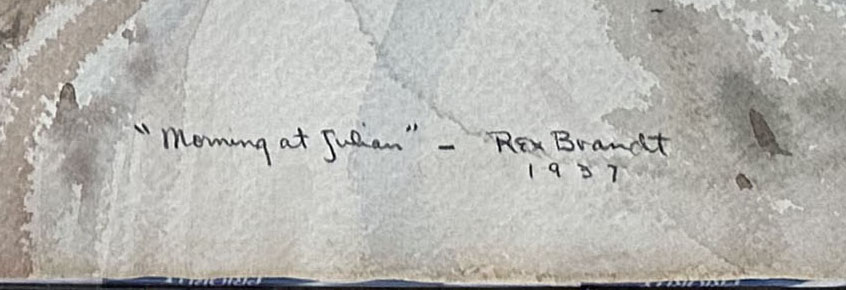 "Morning at Julian" - Rex Brandt
1937